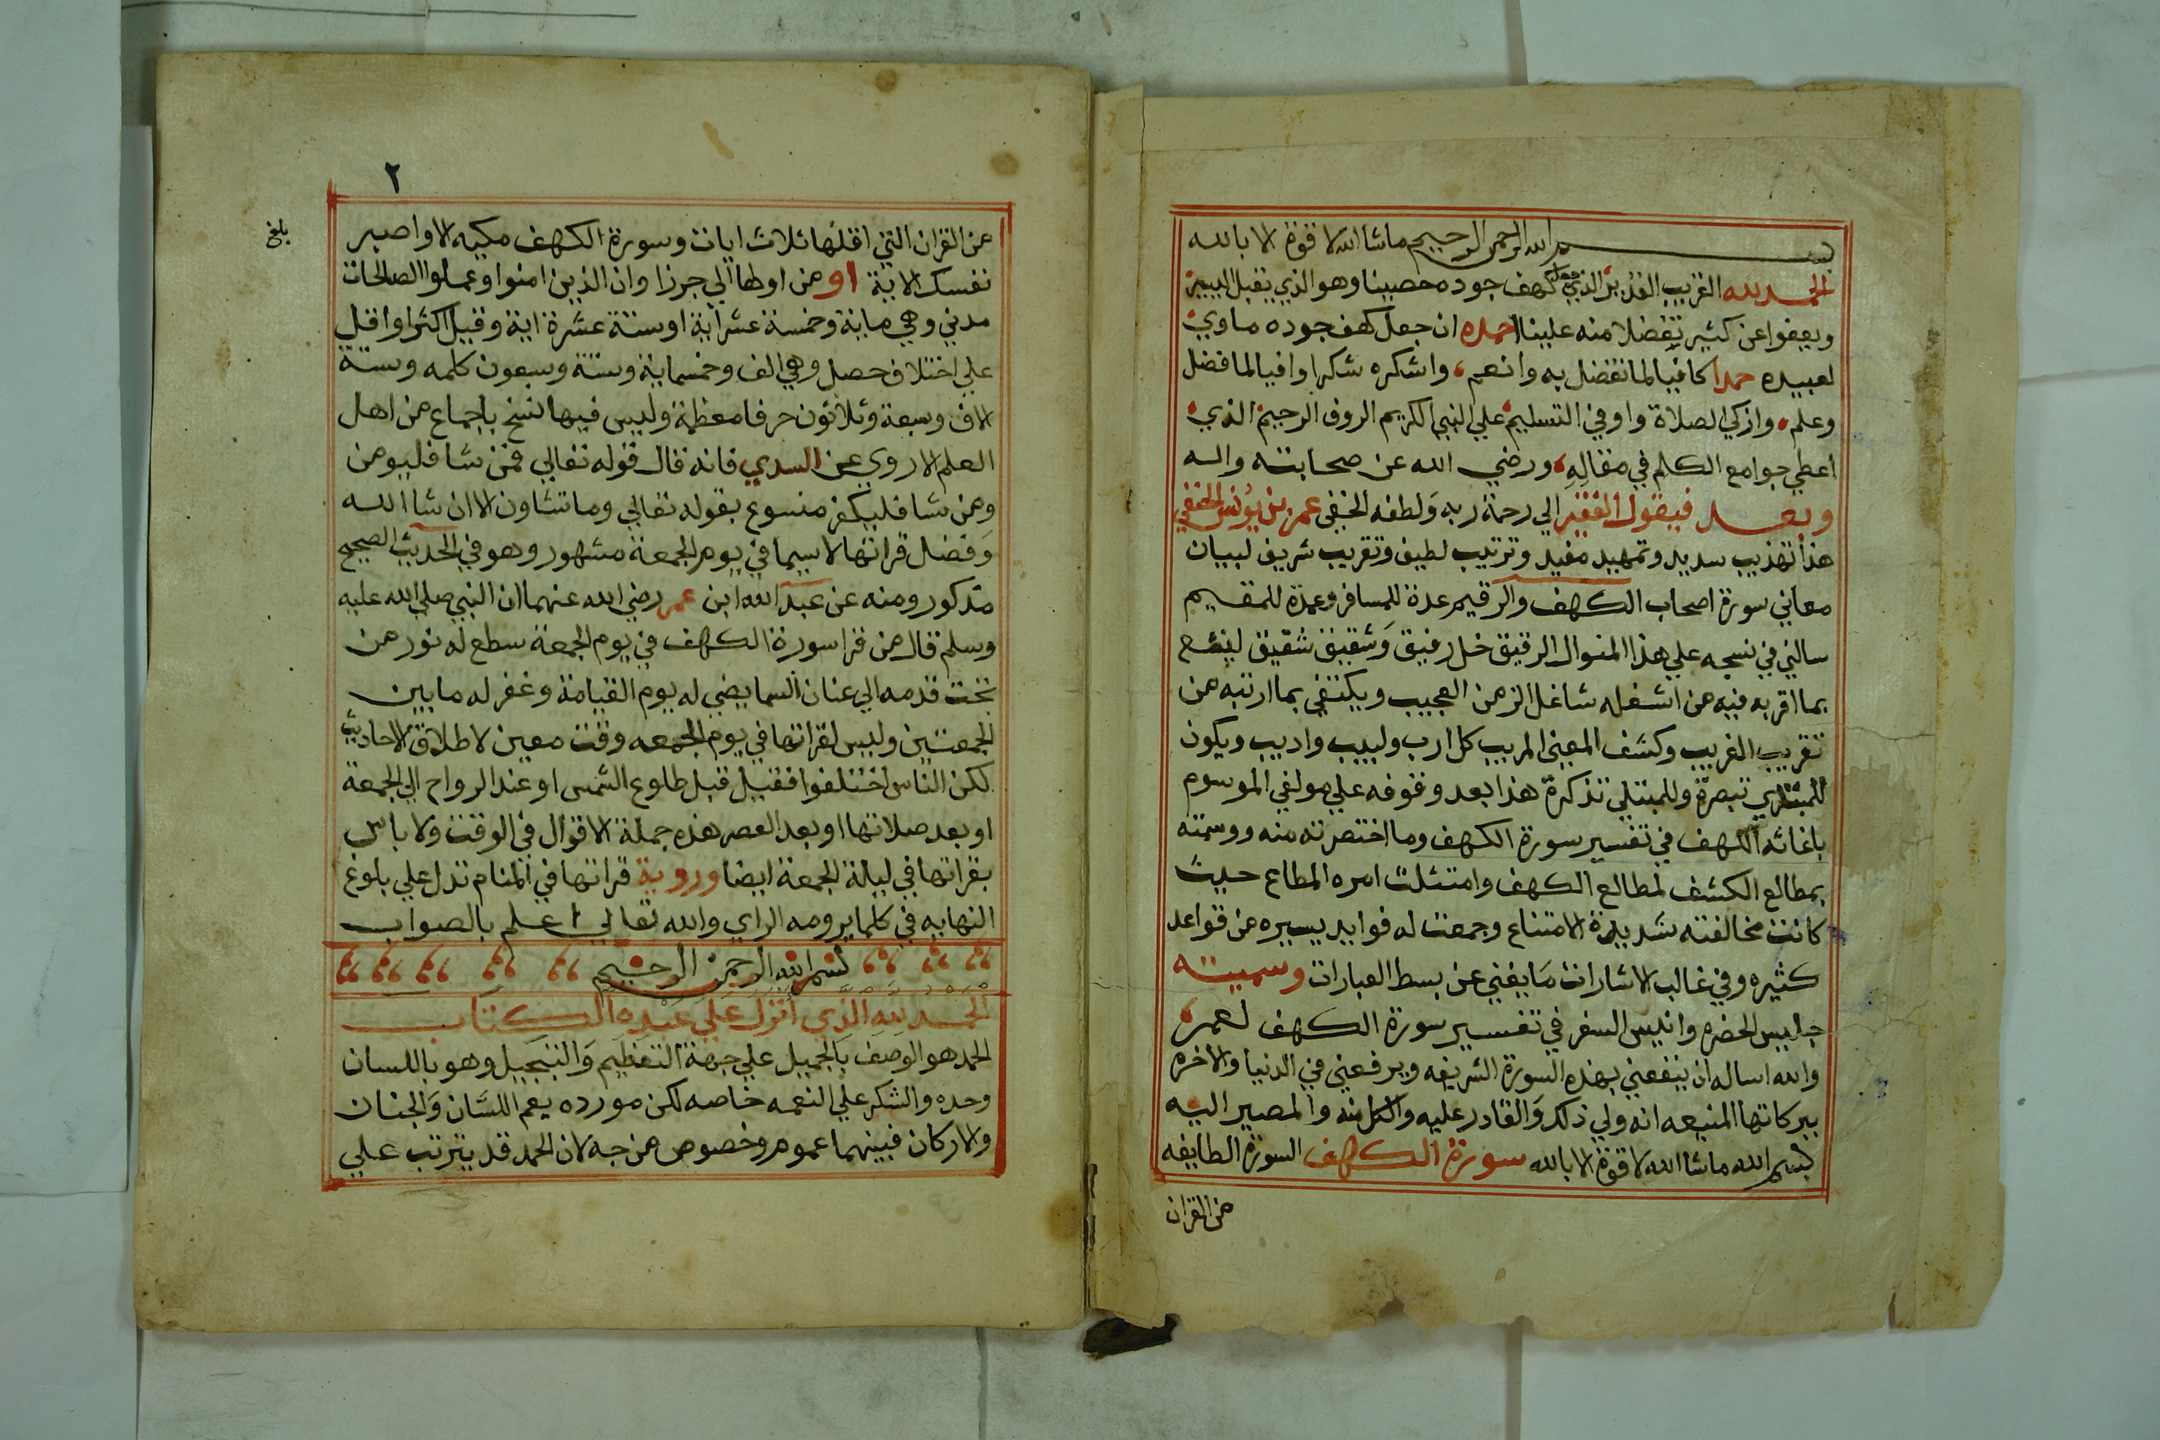 بسم الله الرحمن الرحيم ماشا الله لا قوة الا بالله
الحمد لله القريب القدير الذي جعل كهف جوده حصينا وهو الذي يقبل اليسير
ويعفوا عن كثير تفضلا منه علينا احمده ان جعل كهف جوده ماوي
لعبيده حمدا كافيا لما تفضل به وانعم، واشكره شكرا وافيا لما فضل
وعلم، وازكي الصلاة واوفي التسليم علي النبي الكريم الروف الرحيم الذي
اعطي جوامع الكلم في مقاله، ورضي الله عن صحابته واله
وبعد فيقول الفقير الي رحمة ربه ولطفه الخفي عمر بن يونس الحنفي
هذا تهذيب سديد وتمهيد مفيد وترتيب لطيف وتقريب شريف لبيان
معاني سورة اصحاب الكهف والرقيم عدة للمسافر وعمدة للمقيم
سالني في نسجه علي هذا المنوال الرقيق خل رفيق وشقيق شقيق لينتفع
بما اقربه فيه من اشغله شاغل الزمن العجيب ويكتفي بما ارتبه من
تقريب الغريب وكشف المعني المريب كل ارب ولبيب واديب ويكون
للمبتدي تبصرة وللمبتلي تذكرة هذا بعد وقوفه علي مولفي الموسوم
باغاثه الكهف في تفسير سورة الكهف وما اختصرته منه ووسمته
بمطالع الكشف لمطالع الكهف وامتثلت امره المطاع حيث
كانت مخالفته شديدة الامتناع وجمعت له فوايد يسيره من قواعد
كثيره وفي غالب الاشارات ما يغني عن بسط العبارات وسميته
جليس الحضر وانيس السفر في تفسير سورة الكهف لعمر،
والله اساله ان ينفعني بهذه السورة الشريفه ويرفعني في الدنيا والاخره
ببركاتها المنيعه انه ولي ذلك والقادر عليه والكل منه والمصير اليه
بسم الله ماشا الله لا قوة الا بالله سورة الكهف السورة الطايفه
من القران
٢
من القران التي اقلها ثلاث ايات وسورة الكهف مكيه الا واصبر
بلغ
نفسك الاية او من اولها الي جرزا وان الذين امنوا وعملوا الصالحات
مدني وهي ماية وخمسة عشر اية او ستة عشرة اية وقيل اكثر او اقل
علي اختلاف حصل وهي الف وخمسماية وستة وسبعون كلمه وستة
الاف وسبعة وثلاثون حرفا معظمة وليس فيها نسخ باجماع من اهل
العلم الا روي عن السدي فانه قال قوله تعالي فمن شا فليومن
ومن شا فليكفر منسوخ بقوله تعالي وما تشاون الا ان شا الله
وفضل قراتها لاسيما في يوم الجمعة مشهور وهو في الحديث الصحيح
مذكور ومنه عن عبد الله ابن عمر رضي الله عنهما ان النبي صلي الله عليه
وسلم قال من قرا سورة الكهف في يوم الجمعة سطع له نور من
تحت قدمه الي عنان السما يضي له يوم القيامة وغفر له ما بين
الجمعتين وليس لقراتها في يوم الجمعه وقت معين لاطلاق الاحاديث
لكن الناس اختلفوا فقيل قبل طلوع الشمس او عند الرواح الي الجمعة
او بعد صلاتها او بعد العصر هذه جملة الاقوال في الوقت ولا باس
بقراتها في ليلة الجمعة ايضا وروية قراتها في المنام تدل علي بلوغ
النهايه في كلما يرومه الراي والله تعالي اعلم بالصواب
بسم الله الرحمن الرحيم
الحمد لله الذي انزل علي عبده الكتاب
الحمد هو الوصف بالجميل علي جهة التعظيم والتبجيل وهو باللسان
وحده والشكر علي النعمه خاصه لكن مورده يعم اللسان والجنان
والاركان فبينهما عموم وخصوص من جه لان الحمد قد يترتب علي